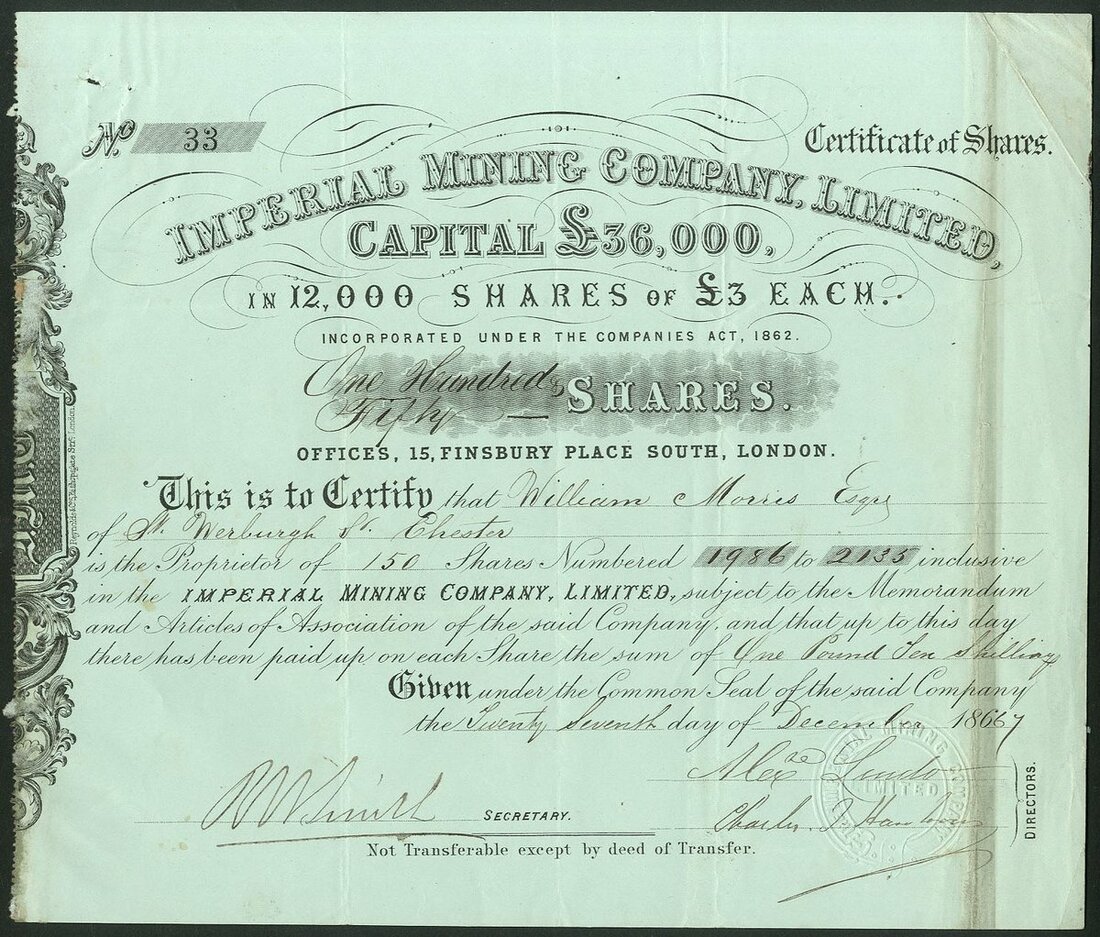 No 33
Certificate of Shares.
IMPERIAL MINING COMPANY, LIMITED,
CAPITAL £36,000,
IN 12,000 SHARES OF £3 EACH.
INCORPORATED UNDER THE COMPANIES ACT, 1862.
One Hundred &
Fifty — SHARES.
OFFICES, 15, FINSBURY PLACE SOUTH, LONDON.
This is to Certify that William Morris Esqre
of St Werburgh St. Chester
is the Proprietor of 150 Shares Numbered 1986 to 2135 inclusive
in the IMPERIAL MINING COMPANY, LIMITED, subject to the Memorandum
and Articles of Association of the said Company, and that up to this day
there has been paid up on each Share the sum of One Pound Ten Shilling
Given under the Common Seal of the said Company
the Twenty Seventh day of December 1867
Alexe
Smith SECRETARY.
Charles J.
DIRECTORS.
IMPERIAL MINING COMPANY
LIMITED
Not Transferable except by deed of Transfer.
London